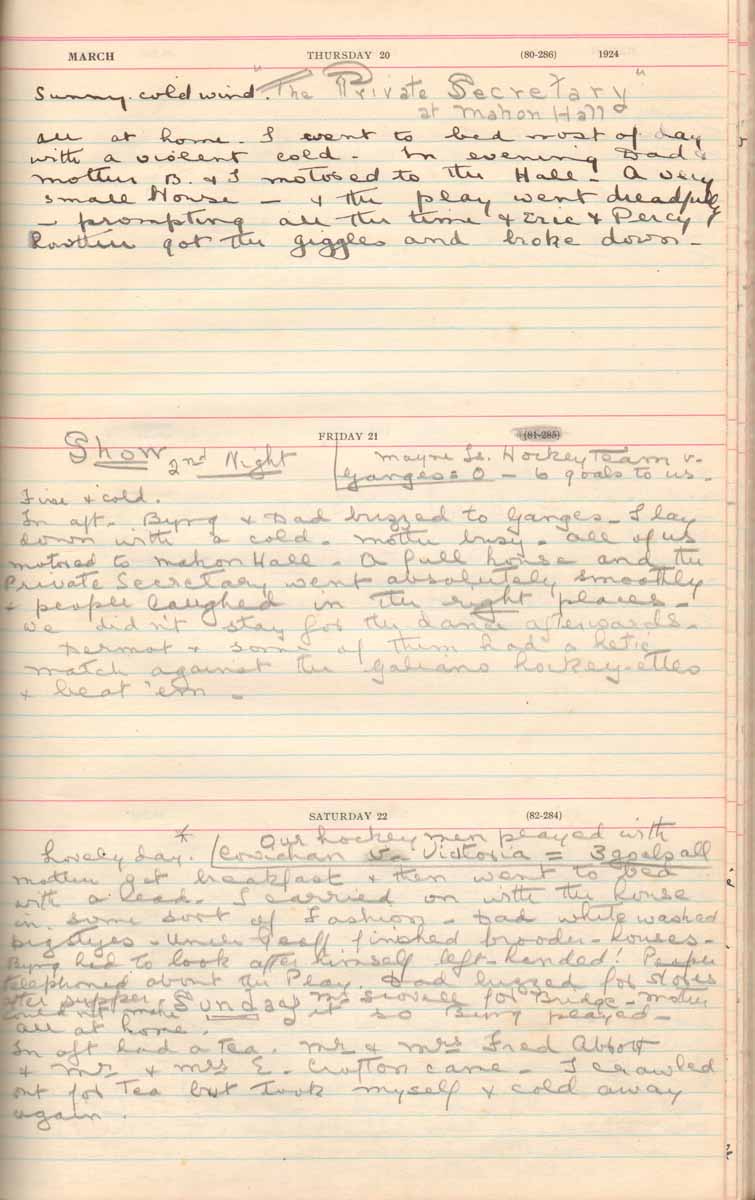 MARCH THURSDAY 20 (80-286) 1924
Sunny. cold wind. "The Private Secretary"
at Mahon Hall
all at home. I went to bed most of day
with a violent cold. In evening Dad &
mother B. & I motored to the Hall. A very
small House - & the play went dreadfully
- prompting all the time & Eric & Percy
got the giggles and broke down -
FRIDAY 21 (81-285)
Show 2nd Night Mayne Is. Hockey Team v.
Ganges = 0 - 6 goals to us.
Fine & cold.
In aft. Byng & Dad buzzed to Ganges - I lay
down with a cold. Mother busy. all of us
motored to Mahon Hall. A full house and the
Private Secretary went absolutely smoothly
& people laughed in the right places -
we didn't stay for the dance afterwards.
Dermot & some of them had a
match against the Galiano hockey-ettes
& beat 'em -
SATURDAY 22 (82-284)
* Our hockey men played with
Lovely day. Cowichan v. Victoria = 3 goals all
mother got breakfast & then went to bed
with a head. I carried on with the house
in some sort of fashion - Dad white washed
pigstyes. Uncle Geoff finished brooder-houses -
Byng had to look after himself left-handed! People
telephoned about the Play. Dad buzzed for
after supper for Bridge - mother
couldn't make it so Byng played -
Sunday
all at home.
In aft had a tea. Mr & Mrs Fred Abbott
& Mr & Mrs E. Crofton came - I crawled
out for Tea but took myself & cold away
again.